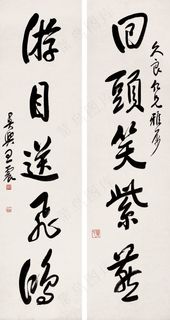 久良仁兄雅属
回頭笑紫燕
游目送飛鴻
吳興王震